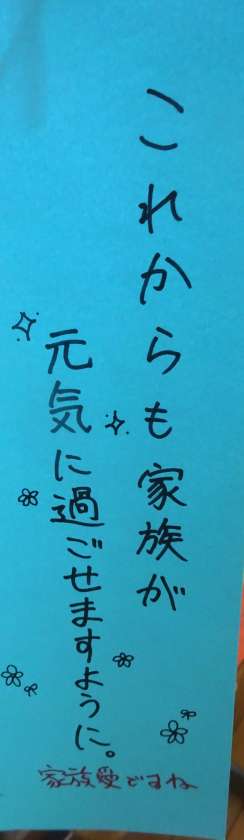 これからも家族が
元気に過ごせますように。
家族愛ですね